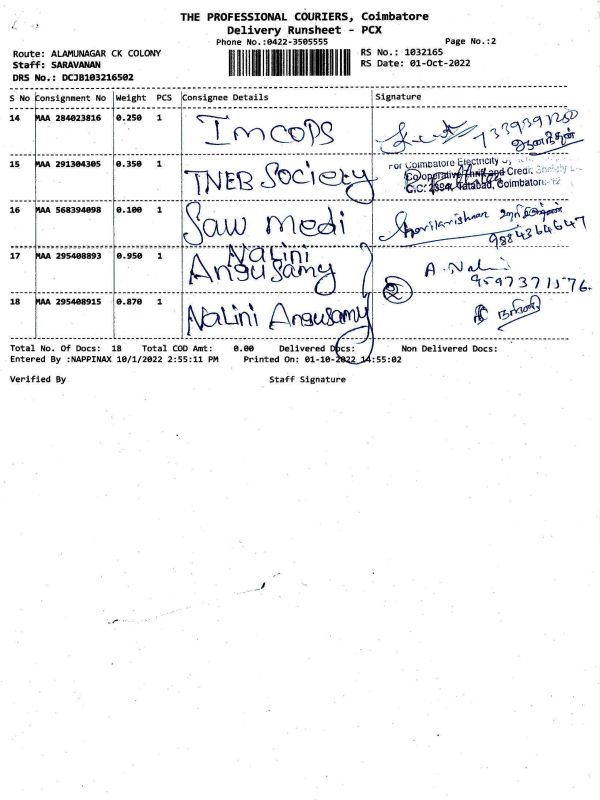 THE PROFESSIONAL COURIERS, Coimbatore
Delivery Runsheet - PCX
Phone No.:0422-3505555 Page No.:2
Route: ALAMUNAGAR CK COLONY RS No.: 1032165
Staff: SARAVANAN RS Date: 01-Oct-2022
DRS No.: DCJB103216502
S No Consignment No Weight PCS Consignee Details Signature
14 MAA 284023816 0.250 1 Imcops
ஆனந்தன்
15 MAA 291304305 0.350 1 TNEB Society For Coimbatore Electricity
Co-operative Thrift and Credit Society
C.C. 2394, Tatabad, Coimbatore-12
16 MAA 568394098 0.100 1 Saw medi
9884364647
17 MAA 295408893 0.950 1 Nalini
Angusamy A. Nalini
9597371576.
18 MAA 295408915 0.870 1 Nalini Angusamy ② நளினி
Total No. Of Docs: 18 Total COD Amt: 0.00 Delivered Docs: Non Delivered Docs:
Entered By :NAPPINAX 10/1/2022 2:55:11 PM Printed On: 01-10-2022 14:55:02
Verified By Staff Signature